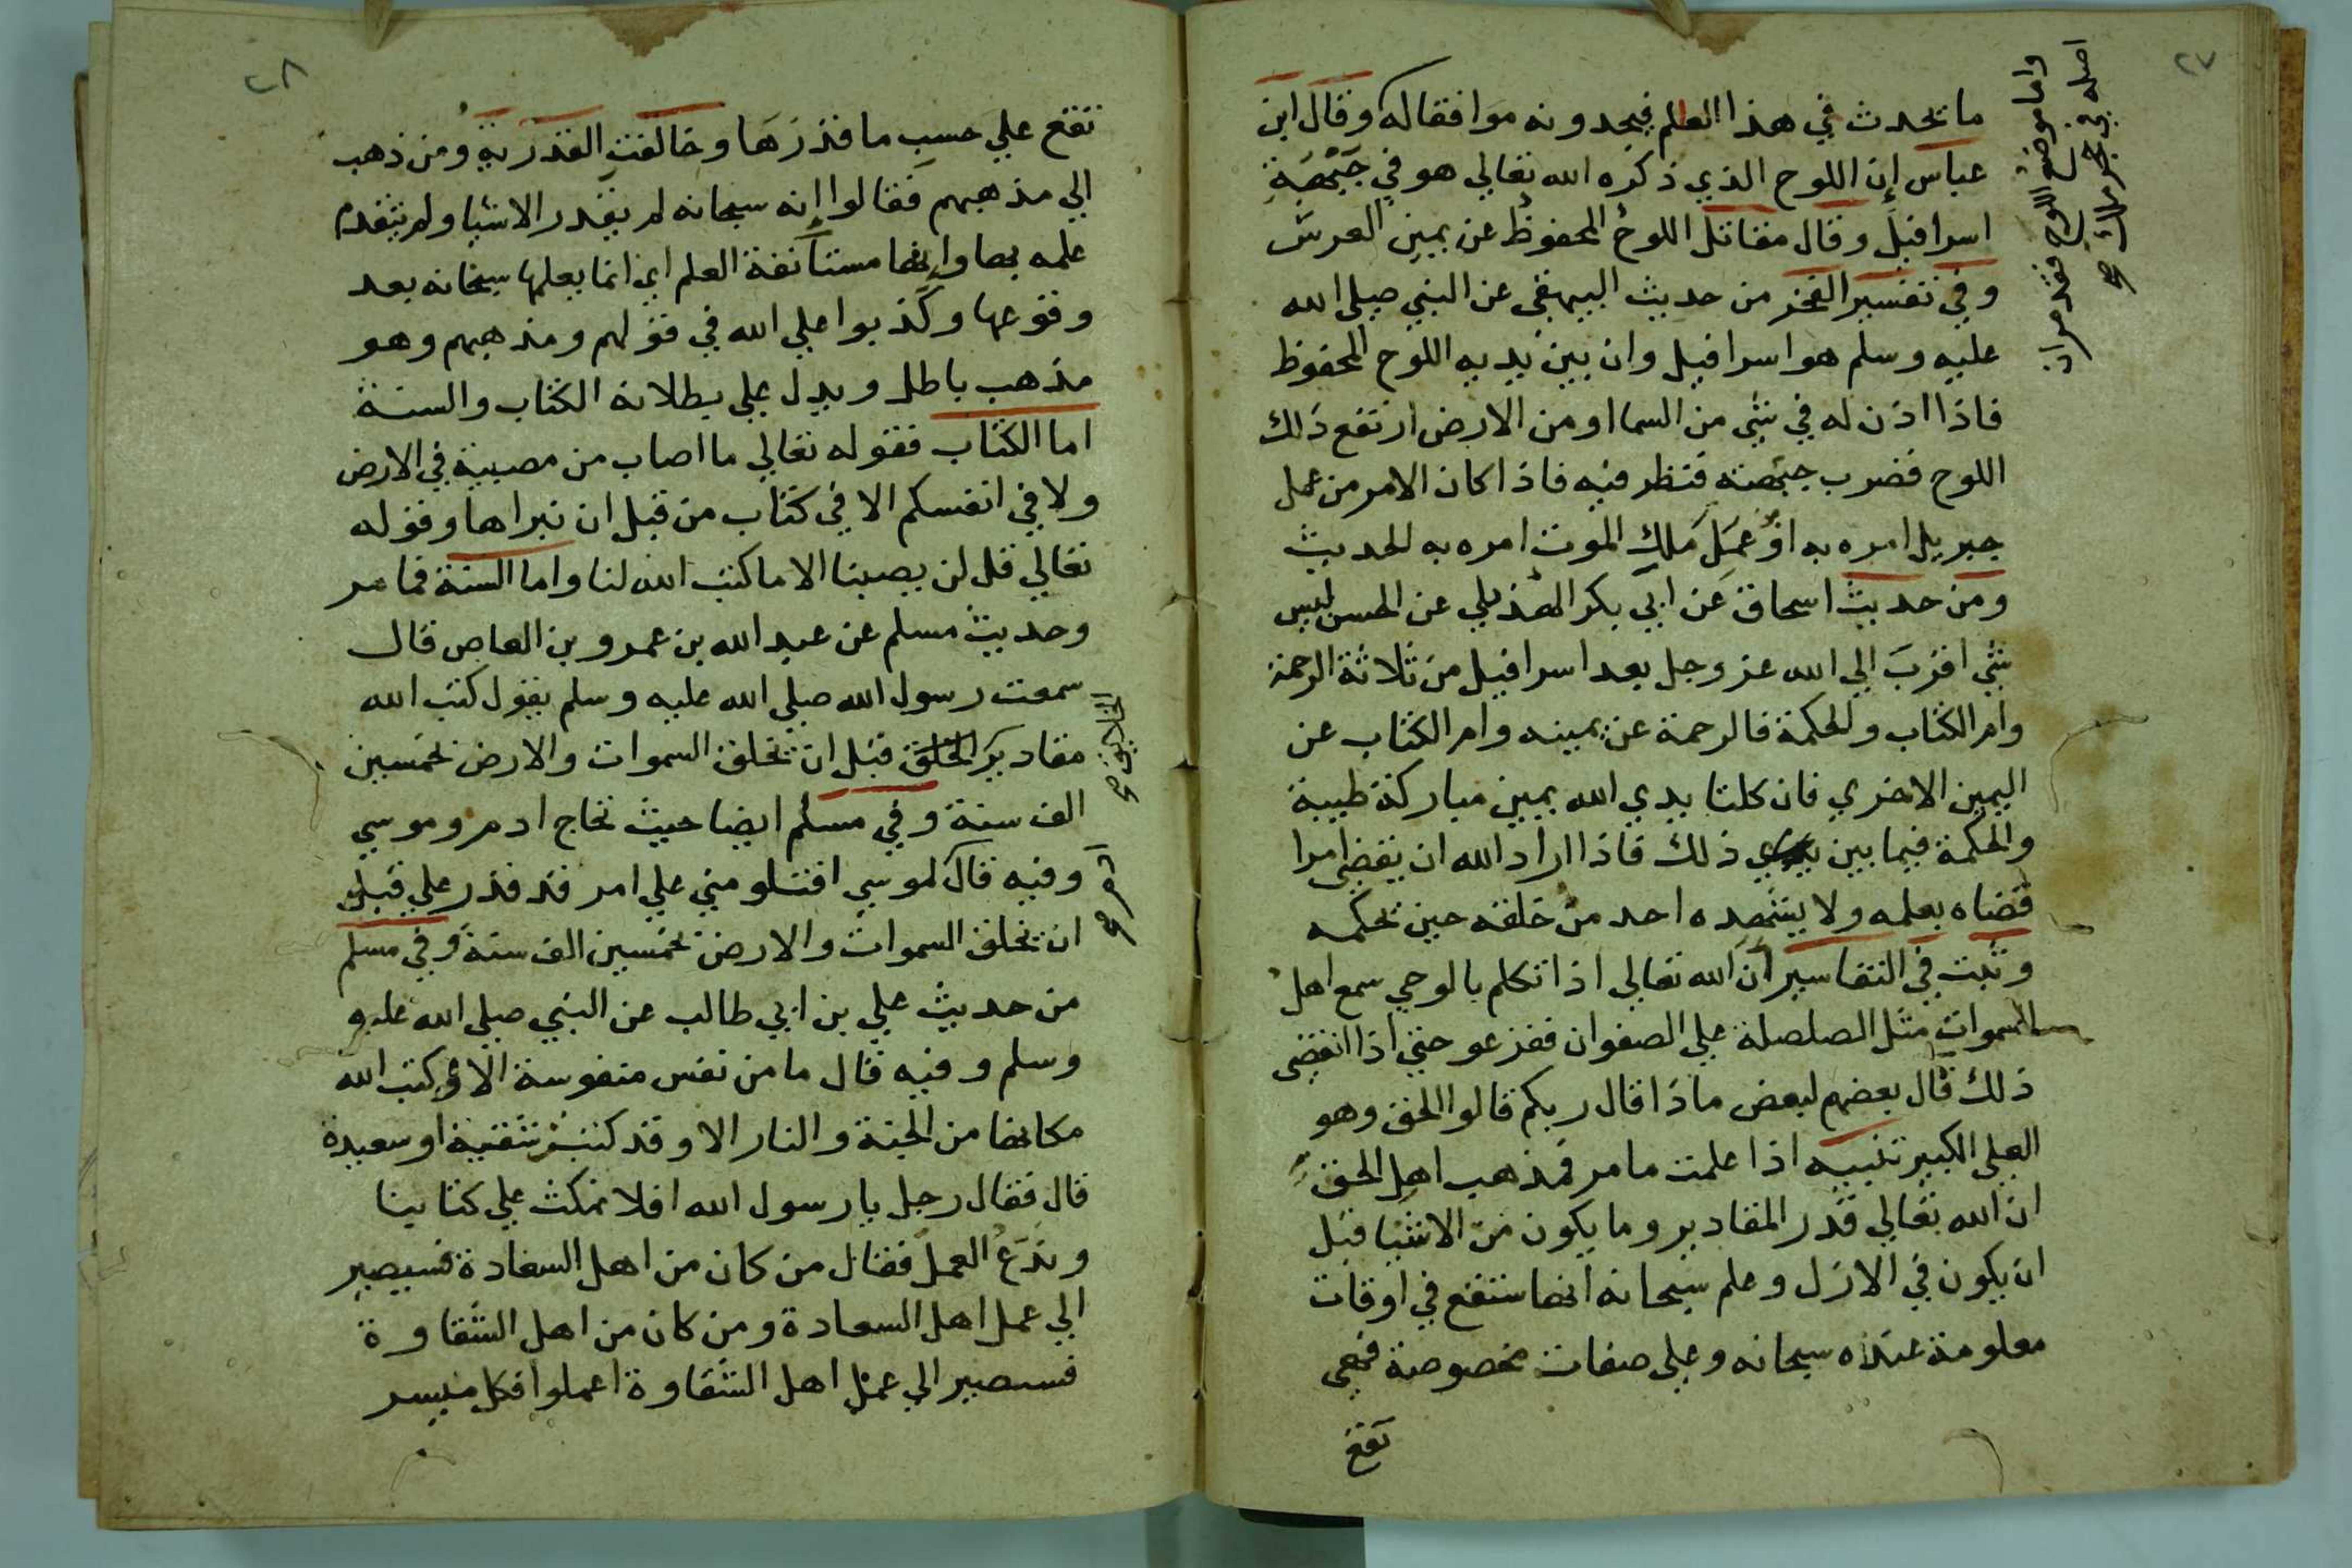 ٢٧
ما يحدث في هذا العالم فيجدونه موافقا له وقال ابن
عباس إن اللوح الذي ذكره الله تعالي هو في جَبْهَةِ
اسرافيل وقال مقاتل اللوح المحفوظ عن يمين العرش
وفي تفسير الفخر من حديث البيهقي عن النبي صلي الله
عليه وسلم هو اسرافيل وان بين يديه اللوح المحفوظ
فاذا اذن له في شي من السما او من الارض ارتفع ذلك
اللوح فضرب جبهته فنظر فيه فاذا كان الامر من عمل
جبريل امره به او عمل ملك الموت امره به الحديث
ومن حديث اسحاق عن ابي بكر الهذلي عن الحسن ليس
شي اقرب الي الله عز وجل بعد اسرافيل من ثلاثة الرحمة
وام الكتاب والحكمة فالرحمة عن يمينه وام الكتاب عن
اليمين الاخري فان كلتا يدي الله يمين مباركة طيبة
والحكمة فيما بين يدي ذلك فاذا اراد الله ان يقضي امرا
قضاه بعلمه ولا يشهده احد من خلقه حين يحكمه
وثبت في التفاسير ان الله تعالي اذا تكلم بالوحي سمع اهل
السموات مثل الصلصلة علي الصفوان ففزعو حتي اذا انقضي
ذلك قال بعضهم لبعض ماذا قال ربكم قالوا الحق وهو
العلي الكبير تنبيه اذا علمت ما مر فمذهب اهل الحق
ان الله تعالي قدر المقادير وما يكون من الاشيا قبل
ان يكون في الازل وعلم سبحانه انها ستقع في اوقات
معلومة عنده سبحانه وعلي صفات مخصوصة فهي
تقع
واما موضع اللوح فقد مر ان
اصله في حجر ملك صح
٢٨
تقع علي حسب ما قدرها وخالفت القدرية ومن ذهب
الي مذهبهم فقالوا إنه سبحانه لم يقدر الاشيا ولم يتقدم
علمه بها وإنها مستأنفة العلم اي انما يعلمها سبحانه بعد
وقوعها وكذبوا علي الله في قولهم ومذهبهم وهو
مذهب باطل ويدل علي بطلانه الكتاب والسنة
اما الكتاب فقوله تعالي ما اصاب من مصيبة في الارض
ولا في انفسكم الا في كتاب من قبل ان نبراها وقوله
تعالي قل لن يصيبنا الا ما كتب الله لنا واما السنة فما مر
وحديث مسلم عن عبد الله بن عمرو بن العاص قال
سمعت رسول الله صلي الله عليه وسلم يقول كتب الله
مقادير الخلق قبل ان يخلق السموات والارض بخمسين
الف سنة وفي مسلم ايضا حيث تحاج ادم وموسي
وفيه قال لموسي افتلومني علي امر قد قدر علي قبل
ان يخلق السموات والارض بخمسين الف سنة وفي مسلم
من حديث علي بن ابي طالب عن النبي صلي الله عليه
وسلم وفيه قال ما من نفس منفوسة الا و كتب الله
مكانها من الجنة والنار الا وقد كتبت شقية او سعيدة
قال فقال رجل يا رسول الله افلا نمكث علي كتابنا
وندع العمل فقال من كان من اهل السعادة فسيصير
الي عمل اهل السعادة ومن كان من اهل الشقاوة
فسيصير الي عمل اهل الشقاوة اعملوا فكل ميسر
الخلايق صح